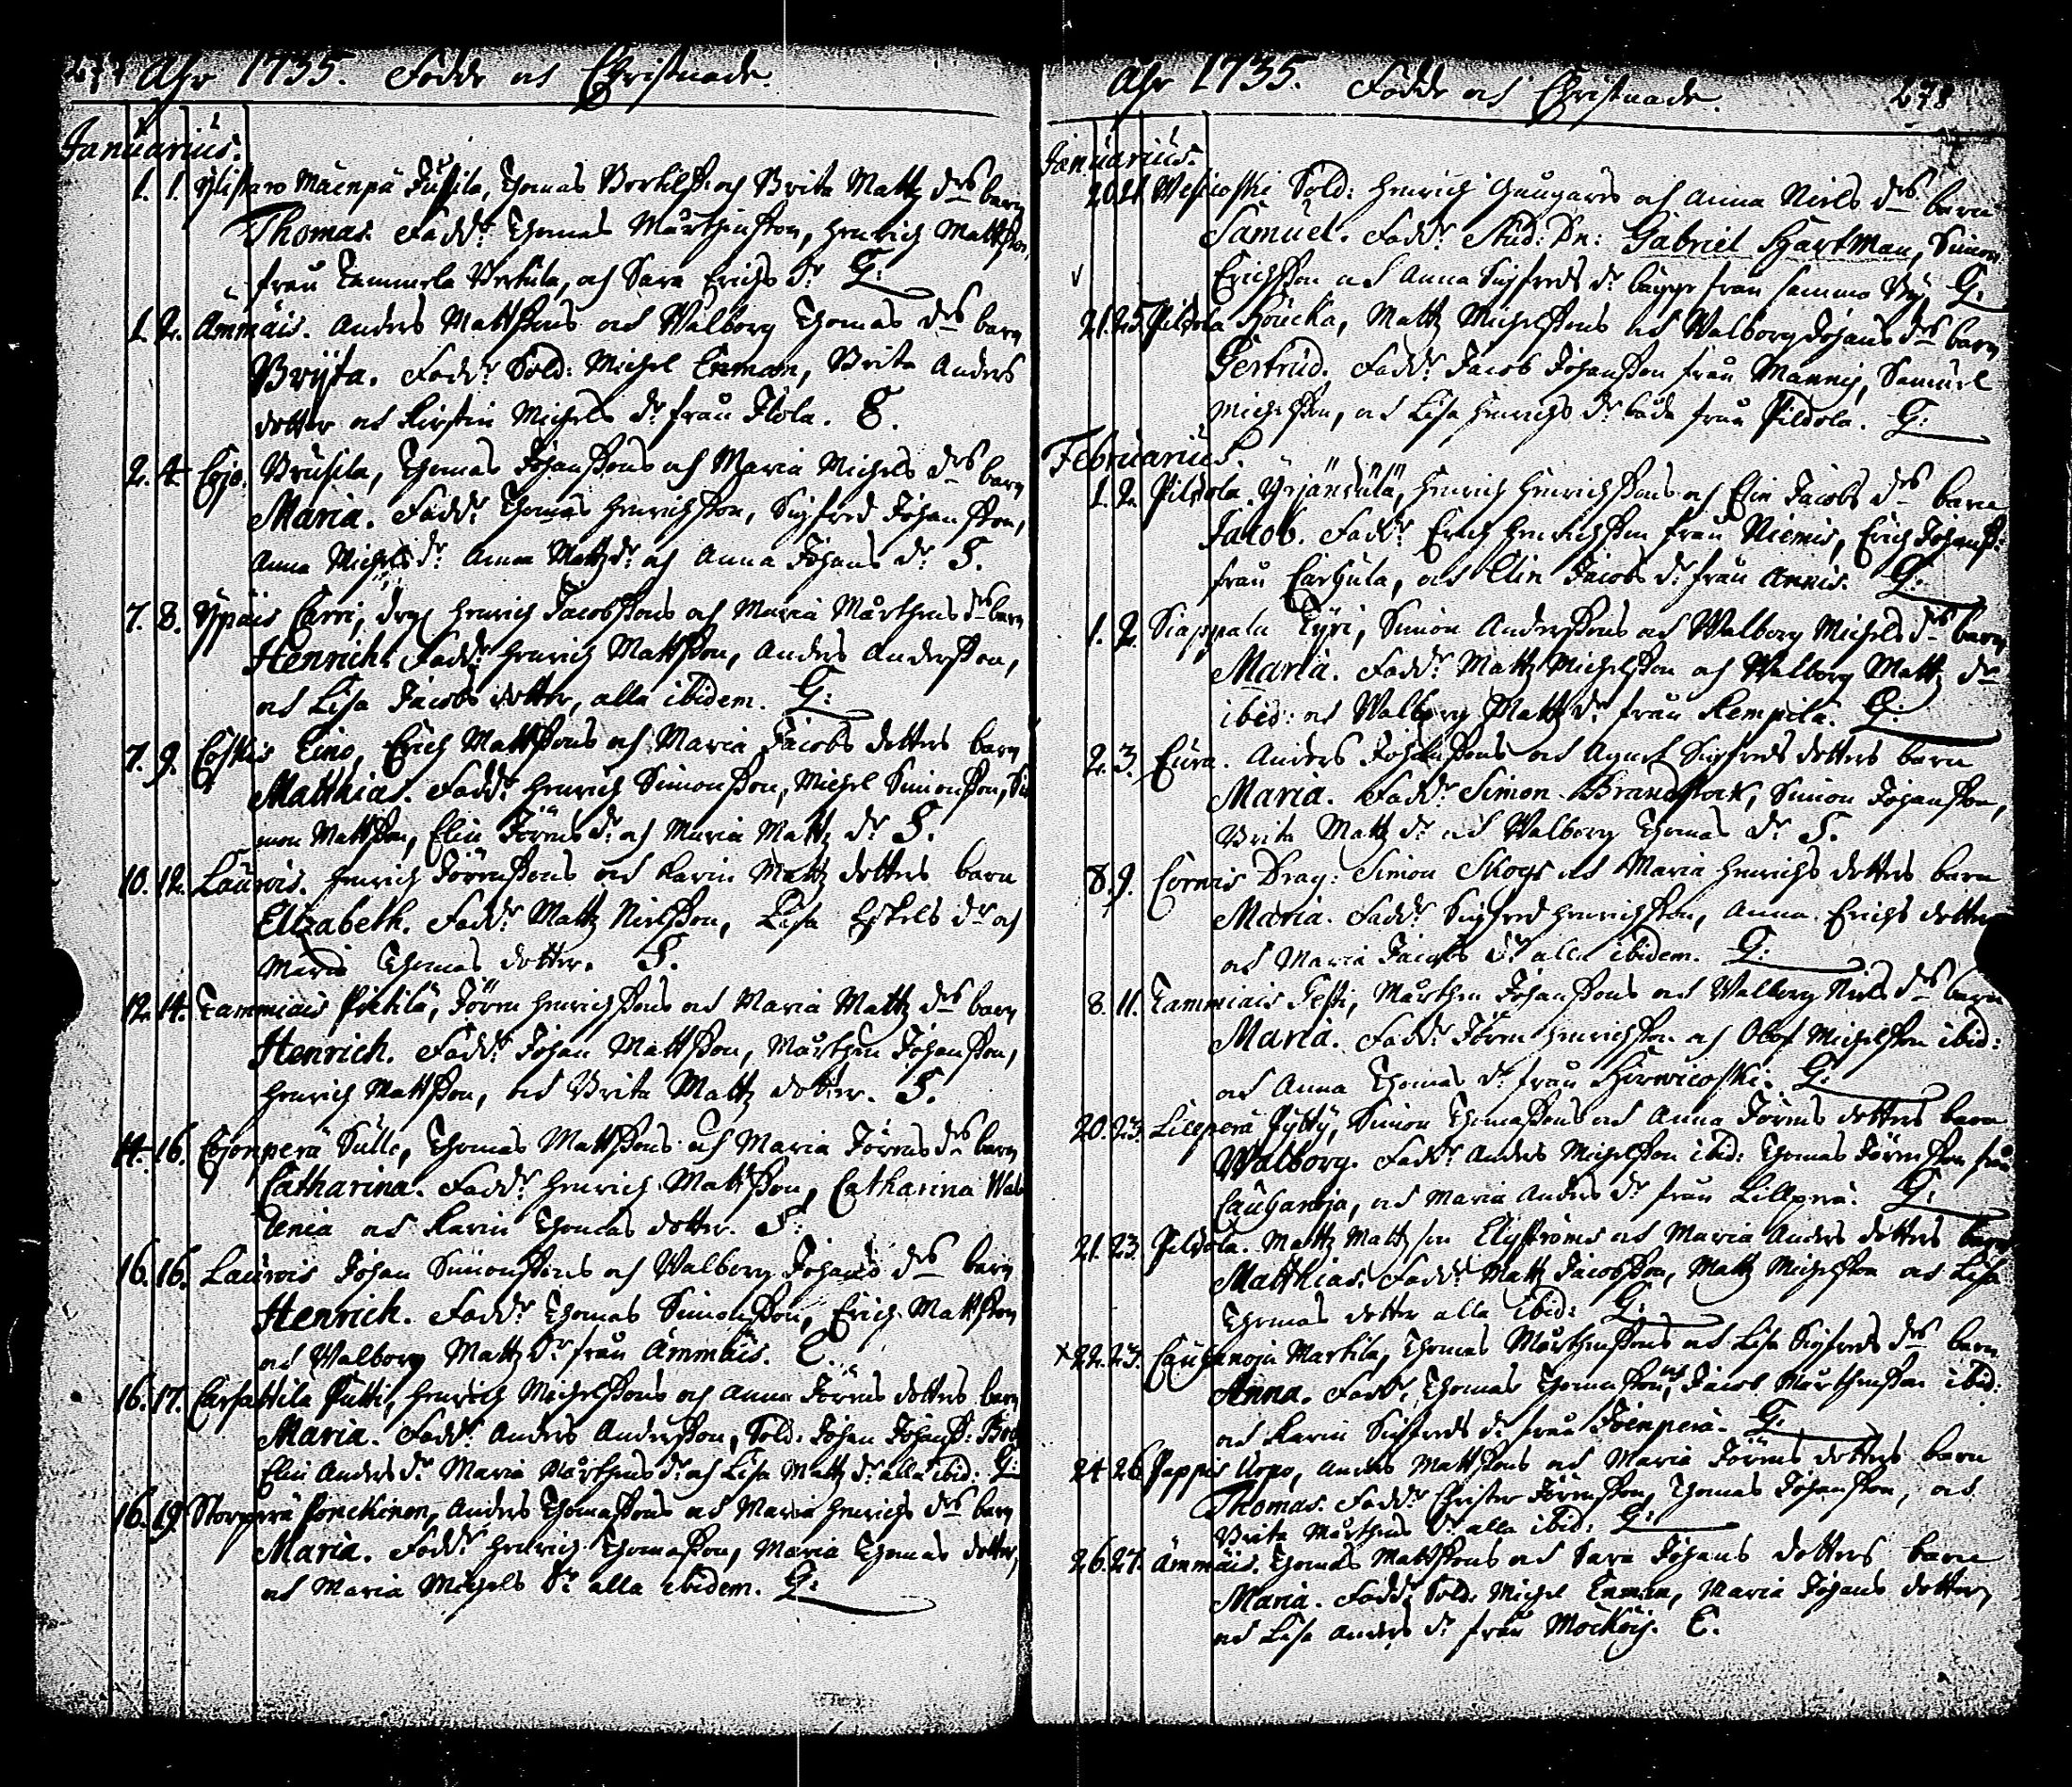 277 Åhr 1735. Födde och Christnade.
Januarius.
1. 1. Ylistaro Mäenpä Jussila, Thomas Bertilss. och Brita Mattz drs barn
Thomas. Fadd:r Thomas Mårthinsson, Henrich Mattsson,
från Tammela, och Sara Erichs dr G:
1. 2. Ämmäis. Anders Mattssons och Walborg Thomas drs barn
Bryta. Fadd:r Sold: Michel Enman, Brita Anders
dotter och Kirstin Michels dr från Ilola. E.
2. 4. Cojo, Brusila, Thomas Johanssons och Maria Michels drs barn
Maria. Fadd:r Thomas Henrichsson, Sigfred Johansson,
Anna Michels dr Anna Mattz dr och Anna Johans dr S.
7. 8. Yppäis Carri, drag Henrich Jacobssons och Maria Mårthens drs barn
Henrich. Fadd:r Henrich Mattsson, Anders Andersson,
och Lisa Jacobs dotter, alla ibidem. G:
7. 9. Coskis Eino, Erich Mattssons och Maria Jacobs dotters barn
Matthias. Fadd:r Henrich Simonsson, Michel Simonsson, Si
mon Mattsson, Elin Jörens dr och Maria Mattz dr S.
10. 12. Laurois. Henrich Jörenssons och Karin Mattz dotters barn
Elizabeth. Fadd:r Mattz Nielsson, Lisa Eskels dr och
Maria Thomas dotter. S.
12. 14. Tammiais Pietilä, Jören Henrichssons och Maria Mattz drs barn
Henrich. Fadd:r Johan Mattsson, Mårthen Johansson,
Henrich Mattsson, och Brita Mattz dotter. S.
14. 16. Cojonperä Sulle, Thomas Mattssons och Maria Jörens drs barn
Catharina. Fadd:r Henrich Mattsson, Catharina Wal
lenia och Karin Thomas dotter. S:
16. 16. Laurois Johan Simonssons och Walborg Johans drs barn
Henrich. Fadd:r Thomas Simonsson, Erich Mattsson
och Walborg Mattz dr från Ämmäis. E.
16. 17. Carsattila Putti, Henrich Michelssons och Anna Jörens dotters barn
Maria. Fadd:r Anders Andersson, Sold: Johan Johanss:
Elin Anders dr Maria Mårthens dr och Lisa Mattz dr alla ibid: G:
16. 19. Storperä Ponckinen, Anders Thomassons och Maria Henrichs drs barn
Maria. Fadd:r Henrich Thomasson, Maria Thomas dotter,
och Maria Michels dr alla ibidem. G:
Åhr 1735. Födde och Christnade. 278
Januarius.
20. 21. Wesicoski Sold: Henrich Haugars och Anna Niels drs barn
Samuel. Fadd:r Stud: Dn: Gabriel Hartman, Simon
Erichsson och Anna Sigfreds dr bägge från samma by, G:
21. 25. Pildola Houcka, Mattz Michelssons och Walborg Johans drs barn
Gertrud. Fadd:r Jacob Johansson från Mannis, Samuel
Michelsson, och Lisa Henrichs dr båda från Pildola. G:
Februarius.
1. 2. Pildola Yrjänsula, Henrich Henrichssons och Elin Jacobs drs barn
Jacob. Fadd:r Erich Henrichsson från Niemis, Erich Johanss:
från Carhula, och Elin Jacobs dr från Annis. G:
1. 2. Siappala Tyri, Simon Anderssons och Walborg Michels drs barn
Maria. Fadd:r Mattz Michelsson och Walborg Mattz dr
ibid: och Walborg Mattz dr från Rempilä. G:
2. 3. Eura. Anders Johanssons och Agnet Sigfreds dotters barn
Maria. Fadd:r Simon Brandstock, Simon Johansson,
Brita Mattz dr och Walborg Thomas dr S.
8. 9. Cornis Drag: Simon Skogs och Maria Henrichs dotters barn
Maria. Fadd:r Sigfred Henrichsson, Anna Erichs dotter
och Maria Jacobs dr alla ibidem. G:
8. 11. Tammiais Sessi, Mårthen Johanssons och Walborg Niels drs barn
Maria. Fadd:r Jören Henrichsson och Olof Michelsson ibid:
och Anna Thomas dr från Hirwicoski. G:
20. 23. Lilleperä Pytty, Simon Thomassons och Anna Jörens dotters barn
Walborg. Fadd:r Anders Michelsson ibid: Thomas Jörensson från
Cauhanoja, och Maria Anders dr från Lillperä. G:
21. 23. Pildola. Mattz Mattzson Elgströms och Maria Anders dotters barn
Matthias. Fadd:r Mattz Jacobsson, Mattz Michelsson och Lisa
Thomas dotter alla ibid: G:
22. 23. Cauhanoja Martila, Thomas Mårthenssons och Lisa Sigfreds drs barn
Anna. Fadd:r Thomas Thomasson, Jacob Mårthensson ibid:
och Karin Sigfreds dr från Joenperä. G:
24. 26. Pappis Uopo, Anders Mattssons och Maria Jörens dotters barn
Thomas. Fadd:r Christer Jörensson, Thomas Johansson, och
Brita Mårthens dr alla ibid: G:
26. 27. Ämmäis. Thomas Mattssons och Sara Johans dotters barn
Maria. Fadd:r Sold: Michel Enman, Maria Johans dotter
och Lisa Anders dr från Mockois. E.